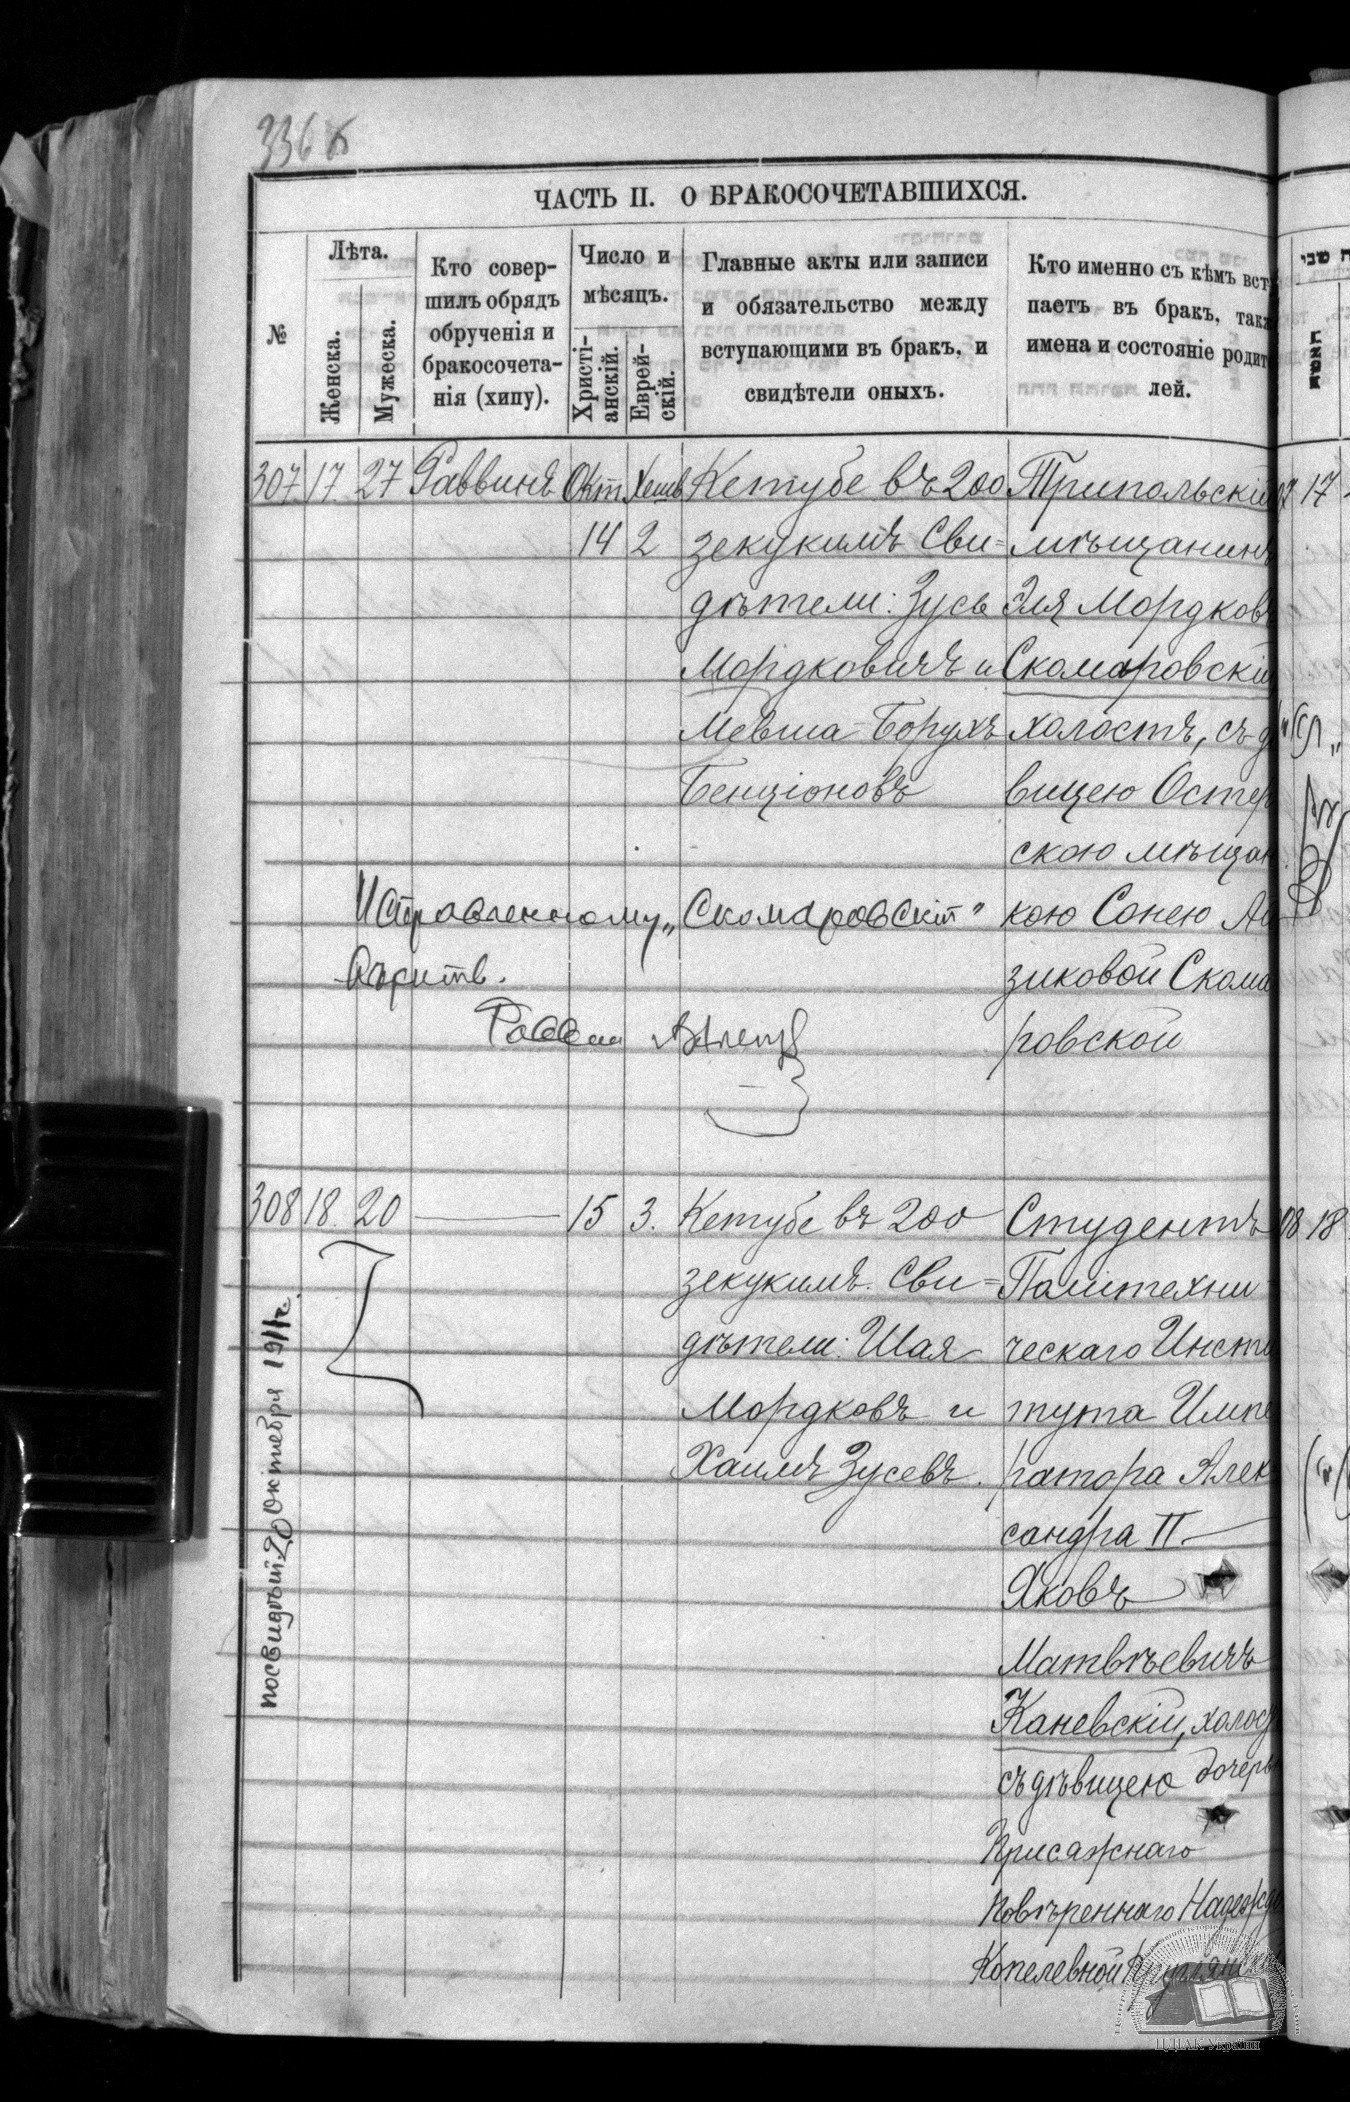 336 б
ЧАСТЬ II. О БРАКОСОЧЕТАВШИХСЯ.
№
Лѣта.
Женска.
Мужеска.
Кто совер-
шилъ обрядъ
обрученія и
бракосочета-
нія (хипу).
Число и
мѣсяцъ.
Христі-
анскій.
Еврей-
скій.
Главные акты или записи
и обязательство между
вступающими въ бракъ, и
свидѣтели оныхъ.
Кто именно съ кѣмъ всту
паетъ въ бракъ, такж
имена и состояніе родите
лей.
307 17 27 Раввинъ Окт Хешв
14 2
Кетубе въ 200
зекукимъ Сви=
дѣтели: Зусь
Мордковичъ и
Мевша-Борухъ
Бенціоновъ
Трипольскій
мѣщанинъ
Эля Мордков
Скомаровскій
холостъ, съ д
вицею Остер
скою мѣщан
кою Сонею Аи
зиковой Скома
ровской
Исправленному „Скомаровскій"
вѣрить.
Раввин
308 18 20 — 15 3.
Кетубе въ 200
зекукимъ. Сви=
дѣтели: Шая
Мордковъ и
Хаимъ Зусевъ.
Студентъ
Политехни
ческаго Инсти
тута Импе
ратора Алек
сандра II
Яковъ
Матвѣевичъ
Каневскій, холост
съ дѣвицею дочерью
Присяжнаго
Повѣреннаго Надежд
Копелевной
20 Октября 1911г.
17
18
ЦДІАК України